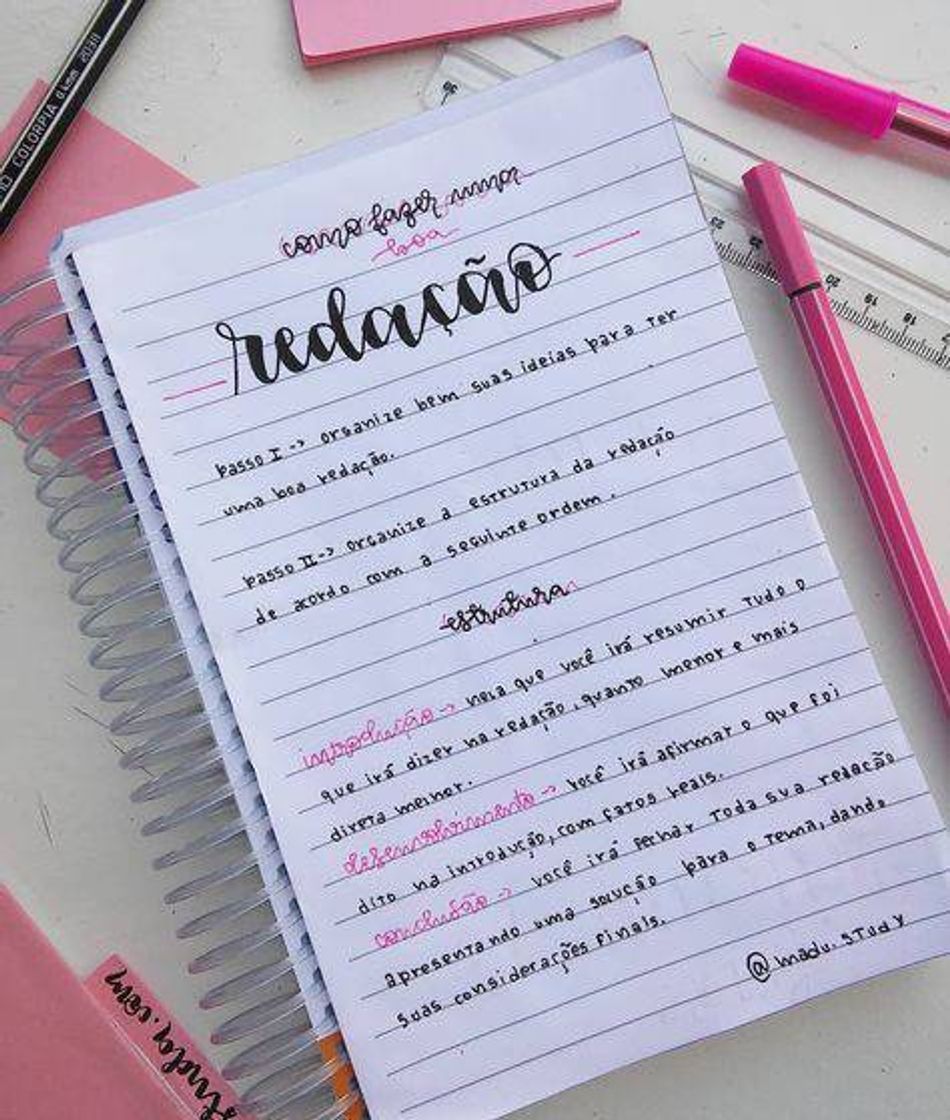 como fazer uma
boa
redação
passo I -> organize bem suas ideias para ter
uma boa redação.
passo II -> organize a estrutura da redação
de acordo com a seguinte ordem.
estrutura
introdução -> nela que você irá resumir tudo o
que irá dizer na redação, quanto menor e mais
direta melhor.
desenvolvimento -> você irá afirmar o que foi
dito na introdução, com fatos reais.
conclusão -> você irá fechar toda sua redação
apresentando uma solução para o tema, dando
suas considerações finais.
@madu.study
COLORPIA 0.4mm
21
20
19
18